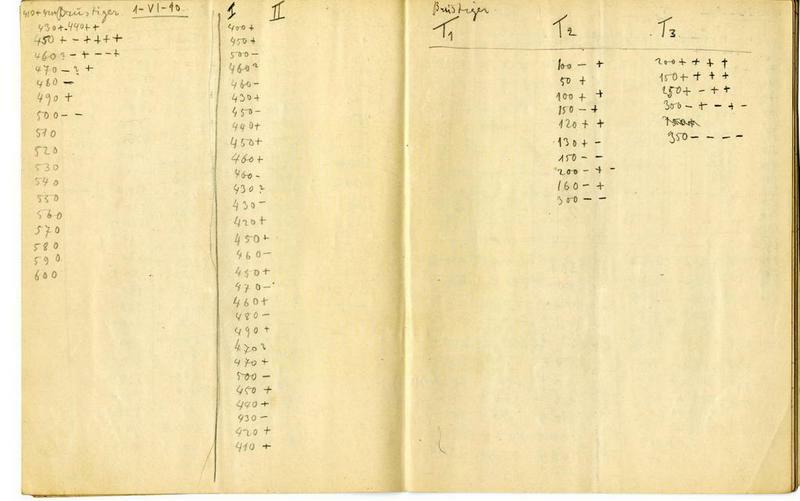 1-VI-10.
430+ 440++
450+-++++
460?-+--+
470-?+
480-
490+
500--
510
520
530
540
550
560
570
580
590
600
I II
400+
450+
500-
460?
460-
430+
450-
440+
450+
460+
460-
430?
430-
420+
450+
460-
450+
470-
460+
480-
490+
470?
470+
500-
450+
440+
430-
420+
410+
T1 T2 T3
100-+
50+
100++
150-+
120++
130+-
150--
200-+-
160-+
300--
200++++
150++++
250+-++
300-+-+-
350----